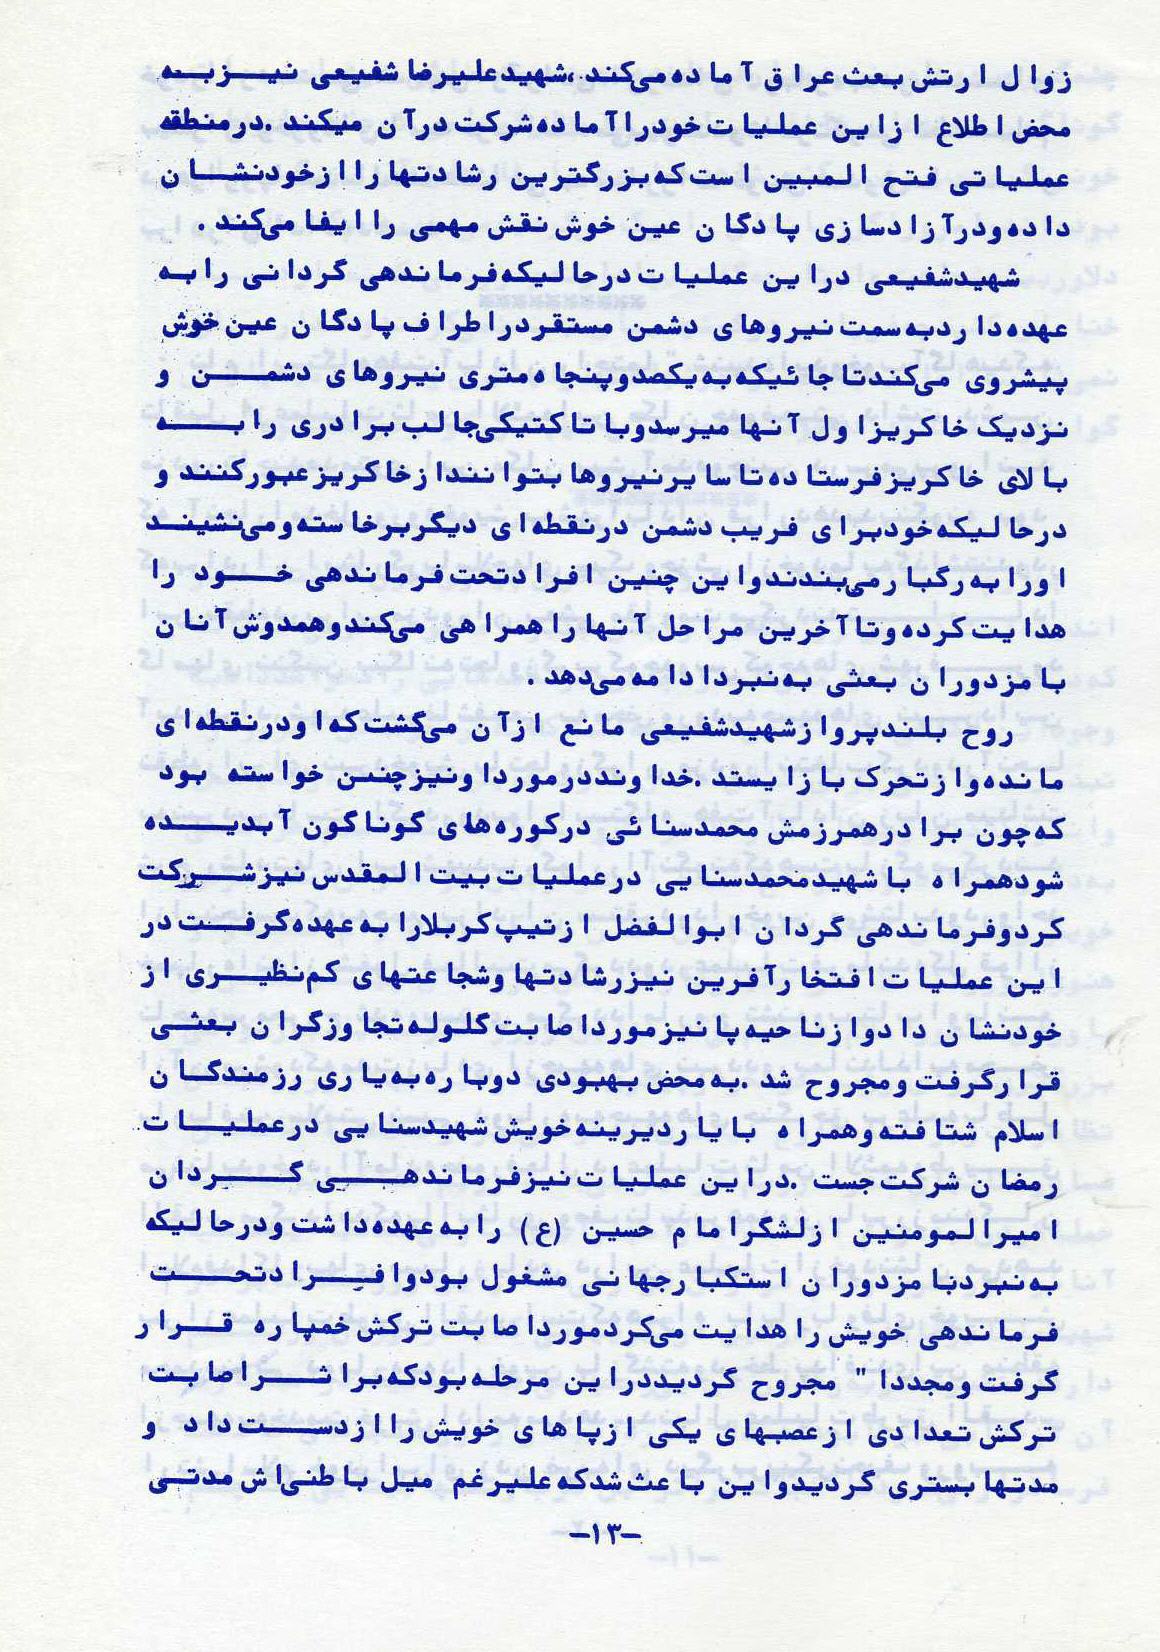 زوال ارتش بعث عراق آماده می‌کند ،شهید علیرضا شفیعی نیز به
محض اطلاع از این عملیات خود را آماده شرکت در آن میکند .در منطقه
عملیاتی فتح المبین است که بزرگترین رشادتها را از خود نشان
داده و در آزادسازی پادگان عین خوش نقش مهمی را ایفا می‌کند .
شهید شفیعی در این عملیات در حالیکه فرماندهی گردانی را به
عهده دارد به سمت نیروهای دشمن مستقر در اطراف پادگان عین خوش
پیشروی می‌کند تا جائیکه به یکصد و پنجاه متری نیروهای دشمن و
نزدیک خاکریز اول آنها میرسد و با تاکتیکی جالب برادری را به
بالای خاکریز فرستاده تا سایر نیروها بتوانند از خاکریز عبور کنند و
در حالیکه خود برای فریب دشمن در نقطه‌ای دیگر برخاسته و می‌نشیند
او را به رگبار می‌بندند و این چنین افراد تحت فرماندهی خود را
هدایت کرده و تا آخرین مراحل آنها را همراهی می‌کند و همدوش آنان
با مزدوران بعثی به نبرد ادامه می‌دهد .
روح بلند پرواز شهید شفیعی مانع از آن می‌گشت که او در نقطه‌ای
مانده و از تحرک باز ایستد .خداوند در مورد او نیز چنین خواسته بود
که چون برادر همرزمش محمد سنائی در کوره‌های گوناگون آبدیده
شود همراه با شهید محمد سنایی در عملیات بیت المقدس نیز شرکت
کرد و فرماندهی گردان ابوالفضل از تیپ کربلا را به عهده گرفت در
این عملیات افتخار آفرین نیز رشادتها و شجاعتهای کم‌نظیری از
خود نشان داد و از ناحیه پا نیز مورد اصابت گلوله تجاوزگران بعثی
قرار گرفت و مجروح شد .به محض بهبودی دوباره به یاری رزمندگان
اسلام شتافته و همراه با یار دیرینه خویش شهید سنایی در عملیات
رمضان شرکت جست .در این عملیات نیز فرماندهی گردان
امیرالمومنین از لشگر امام حسین (ع) را به عهده داشت و در حالیکه
به نبرد با مزدوران استکبار جهانی مشغول بود و افراد تحت
فرماندهی خویش را هدایت می‌کرد مورد اصابت ترکش خمپاره قرار
گرفت و مجددا " مجروح گردید در این مرحله بود که بر اثر اصابت
ترکش تعدادی از عصبهای یکی از پاهای خویش را از دست داد و
مدتها بستری گردید و این باعث شد که علیرغم میل باطنی‌اش مدتی
-۱۳-